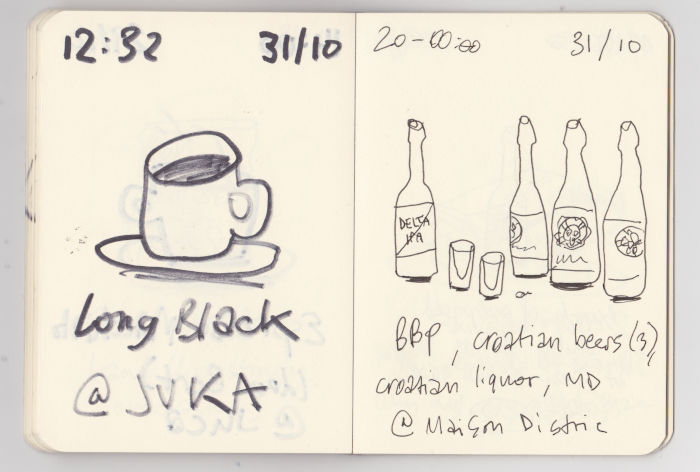 12:32 31/10
Long Black
@ JUKA
20-00:00 31/10
DELTA
IPA
BBP, croatian beers (3),
croatian liquor, MD
@ Maison Distric